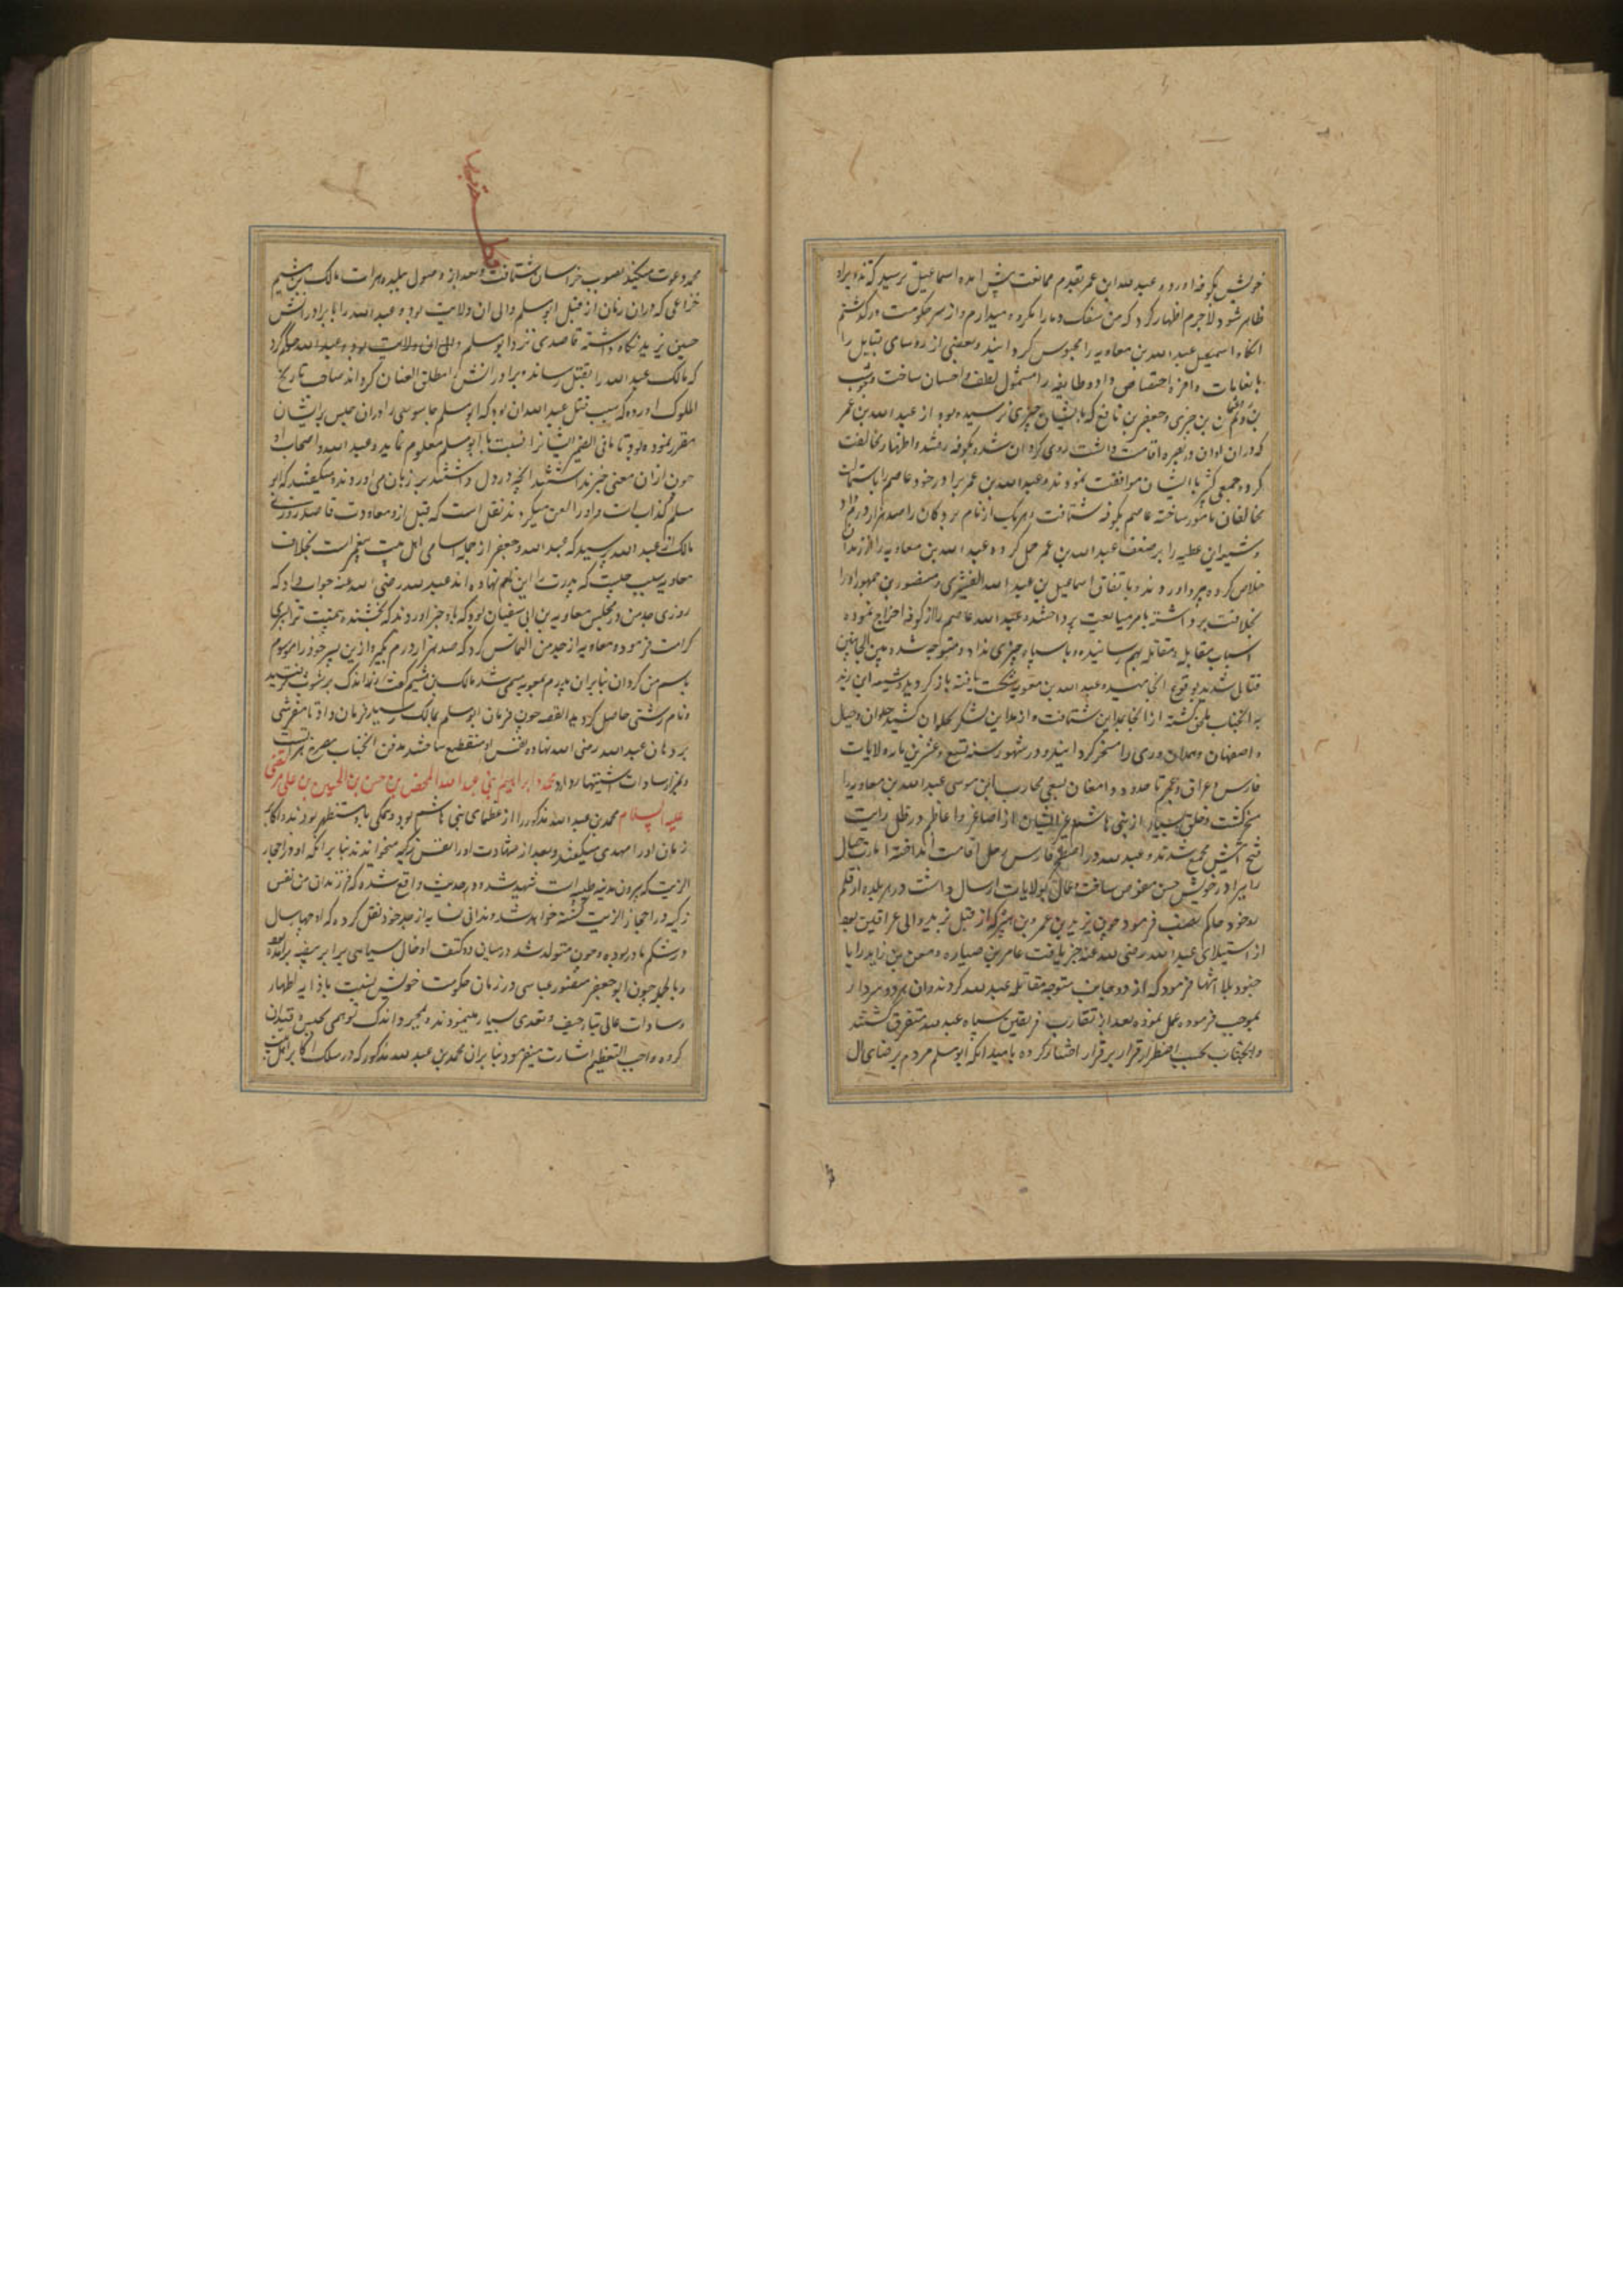 خویش بکوفه اورد و عبد الله ابن عمر بقدم ممانعت پیش امده اسماعیل ترسید که تذویر او
ظاهر شود لاجرم اظهار کرد که من سفک دما را مکروه میدارم و از سر حکومت در گذشتم
انگاه اسمعیل عبد الله بن معاویه را محبوس کردانید و بعضی از روسای قبایل را
بانعامات وافره اختصاص داد و طایفه را مشمول لطف و احسان ساخت
بن جزی و جعفر بن نافع که بایشان چیزی نرسیده بود از عبد الله بن عمر
که دران اوان در بصره اقامت داشت روی کردان شده بکوفه رفتند و اظهار مخالفت
کرده جمعی کثیر با ایشان موافقت نمودند و عبد الله بن عمر برادر خود عاصم را باستمالت
مخالفان مامور ساخته عاصم بکوفه شتافت و هر یک از نام بردکان را صد هزار درم داد
و شیعه این عطیه را بر ضعف عبد الله بن عمر حمل کرده عبد الله بن معاویه را از زندان
خلاص کرده بیرون اوردند و باتفاق اسماعیل بن عبد الله القشیری و منصور بن جمهور او را
بخلافت برداشته بامر مبایعت پرداختند و عبد الله عاصم را از کوفه اخراج نموده
اسباب مقابله و مقاتله بهم رسانیده و با سپاه متوجه شده بین الجانبین
قتالی شدید بوقوع انجامید و عبد الله بن معویه شکست یافته باز کردید و شیعه
بانجناب ملحق کشته از انجا بمداین شتافت و از مداین لشکر بحلوان کشید حلوان و جبال
و اصفهان و همدان و ری را مسخر کردانید و در شهور سنه تسع و عشرین مایه ولایات
فارس و عراق عجم تا حدود دامغان بسعی محارب ابن موسی عبد الله بن معاویه را
مسخر کشت و خلق بسیار از بنی هاشم و غیر ایشان از اصاغر و اعاظم در ظل رایت
فتح ایتش مجتمع شدند و عبد الله در اصطخر فارس رحل اقامت انداخته امارت جبال
را ببرادر خویش حسن مفوض ساخت و عمال بولایات ارسال داشت و در هر بلده از قلم
رو خود حاکم نصب فرمود چون یزید بن عمر و بن هبیره که از قبل یزید والی عراقین بود
از استیلای عبد الله رضی الله عنه خبر یافت عامر بن ضباره و معن بن زایده را با
جنود بلا انتها فرمود که از دو جانب متوجه مقاتله عبد الله کردند و ان هر دو سردار
بموجب فرموده عمل نموده بعد از تقارب فریقین سپاه عبد الله متفرق کشتند
و انجناب بحسب اضطرار فرار بر قرار اختیار کرده بامید انکه ابو مسلم مردم را برضای ال
محمد دعوت میکند بصوب خراسان شتافت و بعد از وصول ببلده هرات مالک بن هیثم
خزاعی که دران زمان از قبل ابو مسلم والی ان ولایت بود عبد الله را با برادرانش
حسین یزید نگاه داشته قاصدی نزد ابو مسلم
که مالک عبد الله را بقتل رساند و برادرانش را مطلق العنان کرداند صاحب تاریخ
الملوک اورده که سبب قتل عبد الله ان بود که ابو مسلم جاسوسی را دران حبس بر ایشان
مقرر نموده بود تا ما فی الضمیر ایشانرا نسبت بابو مسلم معلوم نماید و عبد الله و اصحاب او
چون ازان معنی خبر نداشتند انچه در دل داشتند بر زبان می اوردند و میکفتند که ابو
مسلم کذاب است و او را لعن میکردند نقل است که قبل از معاودت قاصد روزی
مالک از عبد الله پرسید که عبد الله و جعفر از جمله اسامی اهل بیت پیغمبر است بخلاف
معاویه سبب چیست که پدرت را این نام نهاده اند عبد الله رضی الله عنه جواب داد که
روزی جد من در مجلس معاویه بن ابی سفیان بود که باو خبر اوردند که بخشنده بیمنت ترا پسری
کرامت فرمود و معاویه از جد من التماس کرد که صد هزار درم بگیر و این پسر خود را موسوم
باسم من کردان بنابران پدرم بمعویه مسمی شد مالک بن هیثم کفت
و نام زشتی حاصل کردید القصه چون فرمان ابو مسلم بمالک رسید فرمان داد تا مفرشی
بر دهان عبد الله رضی الله نهاده نفس او منقطع ساختند مدفن انجناب مصرخ هراتست
و بمزار سادات اشتهار دارد محمد و ابراهیم ابنی عبد الله المحض بن حسن بن الحسن بن علی المرتضی
علیه السلام محمد بن عبد الله مذکور را از عظمای بنی هاشم بود و همکی باو مستظهر بودند و اکابر
زمان او را مهدی میکفتند و بعد از شهادت او را نفس زکیه میخواندند بنابر انکه او در احجار
الزیت که بیرون مدینه طیبه است شهید شد و در حدیث واقع شده که فرزندان من نفس
زکیه در احجار الزیت کشته خواهد شد و ندانی نسابه از جد خود نقل کرده که او چهار سال
در شکم مادر بوده و چون متولد شد در میان دو کتف او خال سیاهی برابر بیضه
و بالجمله چون ابو جعفر منصور عباسی در زمان حکومت خویش نسبت باذا یه اطهار
و سادات عالی تبار حیف و تعدی بسیار مینمود و بمجرد اندک توهمی بحبس و قید ان
کروه واجب التعظیم اشارت میفرمود بنابران محمد بن عبد الله مذکور که در سلک اکابر اهل بیت